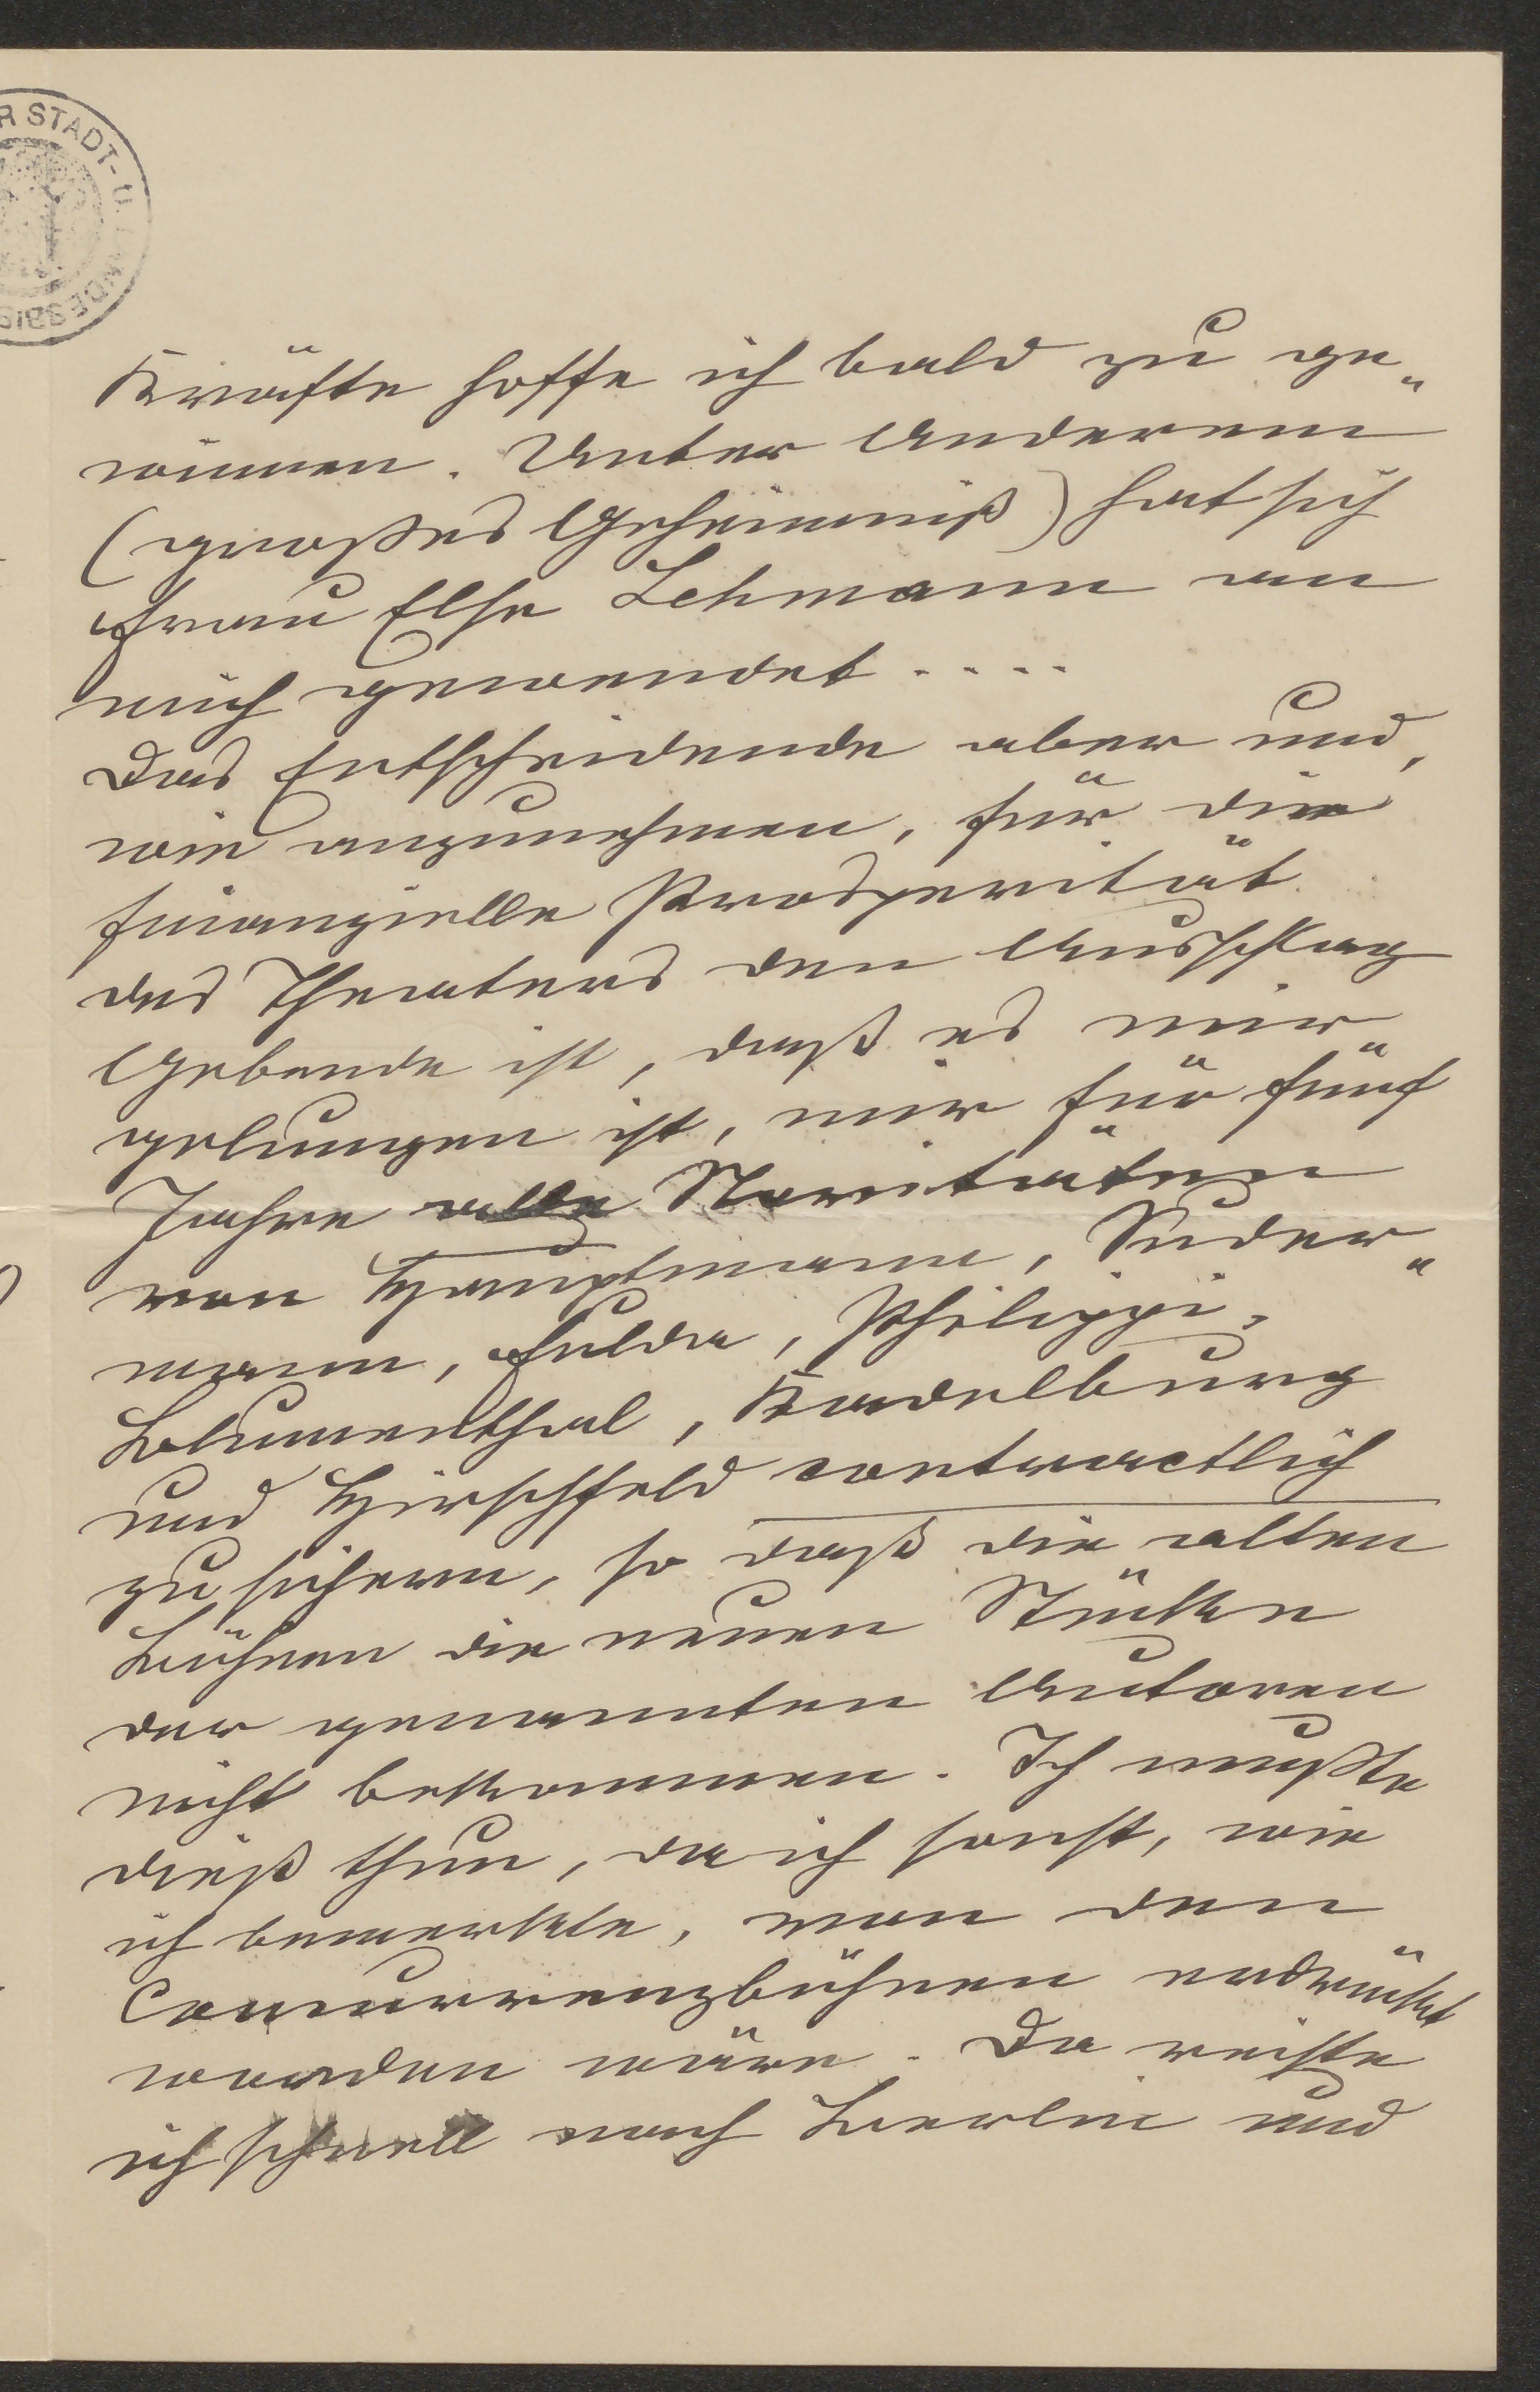 R STADT- U. LANDESBIB
Kräfte hoffe ich bald zu ge„
winnen. Unter Anderem
(großes Geheimniß) hat sich
Frau Else Lehmann an
mich gewendet ....
Das Entscheidende aber und,
wie anzunehmen, für die
finanzielle Prosperität
des Theaters den Ausschlag
Gebende ist, daß es mir
gelungen ist, mir für fünf
Jahre alle Novitäten
von Hauptmann, Suder„
mann, Fulda, Philippi,
Blumenthal, Kadelburg
und Hirschfeld contractlich
zu sichern, so daß die alten
Bühnen die neuen Stücke
der genannten Autoren
nicht bekommen. Ich mußte
dieß thun, da ich sonst, wie
ich bemerkte, von den
Concurrenzbühnen erdrückt
worden wäre. Da reiste
ich schnell nach Berlin und